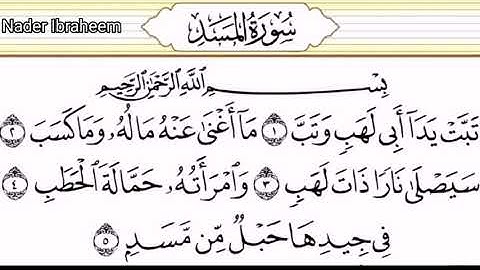 Nader Ibraheem
سُورَةُ المَسَدِ
بِسْمِ اللَّهِ الرَّحْمَٰنِ الرَّحِيمِ
تَبَّتْ يَدَآ أَبِى لَهَبٍ وَتَبَّ ١ مَآ أَغْنَىٰ عَنْهُ مَالُهُۥ وَمَا كَسَبَ ٢
سَيَصْلَىٰ نَارًا ذَاتَ لَهَبٍ ٣ وَٱمْرَأَتُهُۥ حَمَّالَةَ ٱلْحَطَبِ ٤
فِى جِيدِهَا حَبْلٌ مِّن مَّسَدٍۭ ٥